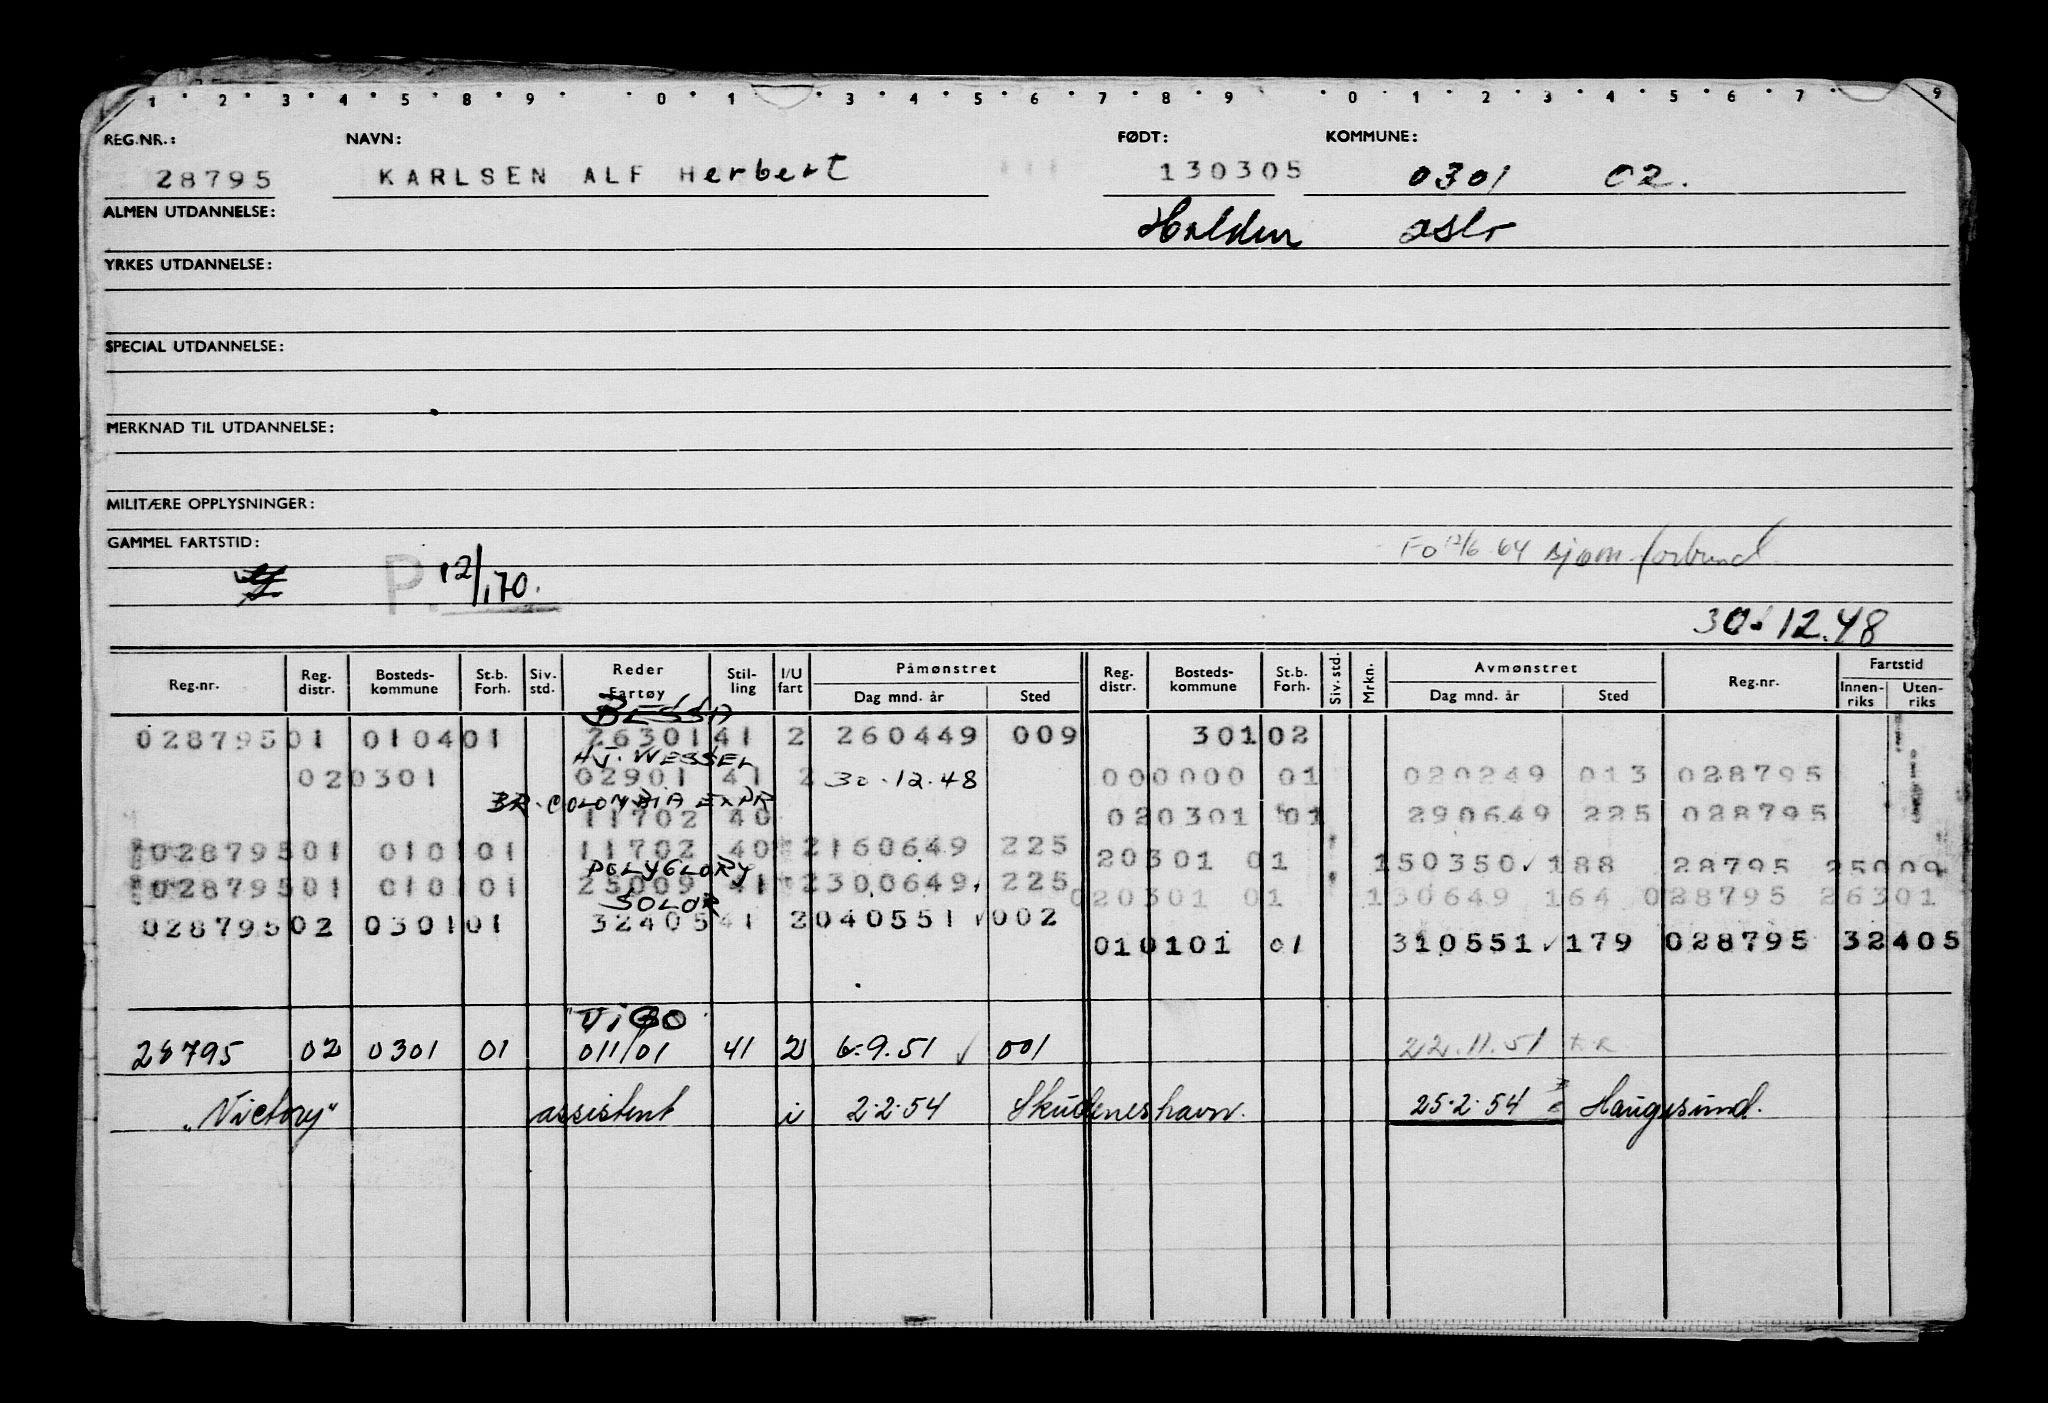 1 2 3 4 5 8 9 0 1 3 4 5 6 7 8 9 0 1 2 3 4 5 6 7 9
REG.NR.: NAVN: FØDT: KOMMUNE:
28795 KARLSEN ALF Herbert 130305 0301 02.
ALMEN UTDANNELSE: Halden Oslo
YRKES UTDANNELSE:
SPECIAL UTDANNELSE:
MERKNAD TIL UTDANNELSE:
MILITÆRE OPPLYSNINGER:
GAMMEL FARTSTID: FO 12/6 64 Bjørn forbund
P. 12/1.70.
30.12.48
Reg.nr. Reg. distr. Bosteds-kommune St.b. Forh. Siv. std. Reder Fartøy Stil-ling I/U fart Påmønstret Dag mnd. år Sted Reg. distr. Bosteds-kommune St.b. Forh. Siv. std. Mrkn. Avmønstret Dag mnd. år Sted Reg.nr. Fartstid Innen-riks Uten-riks
BESSA
028795 01 0104 01 26301 41 2 260449 009 301 02
HJ. WESSEL
02 0301 02901 41 2 30.12.48 000000 01 020249 013 028795
BR. COLOMBIA EXPR
11702 40 020301 01 290649 225 028795
028795 01 0101 01 11702 40 2 160649 225 20301 01 150350 188 28795 25009
POLYGLORY
028795 01 0101 01 25009 41 2 300649 225 020301 01 130649 164 028795 26301
SOLOR
028795 02 0301 01 32405 41 2 040551 002 010101 01 310551 179 028795 32405
"VIGO"
28795 02 0301 01 011101 41 2 6.9.51 001 22.11.51
"Victory" assistent i 2.2.54 Skudeneshavn. 25.2.54 Haugesund.